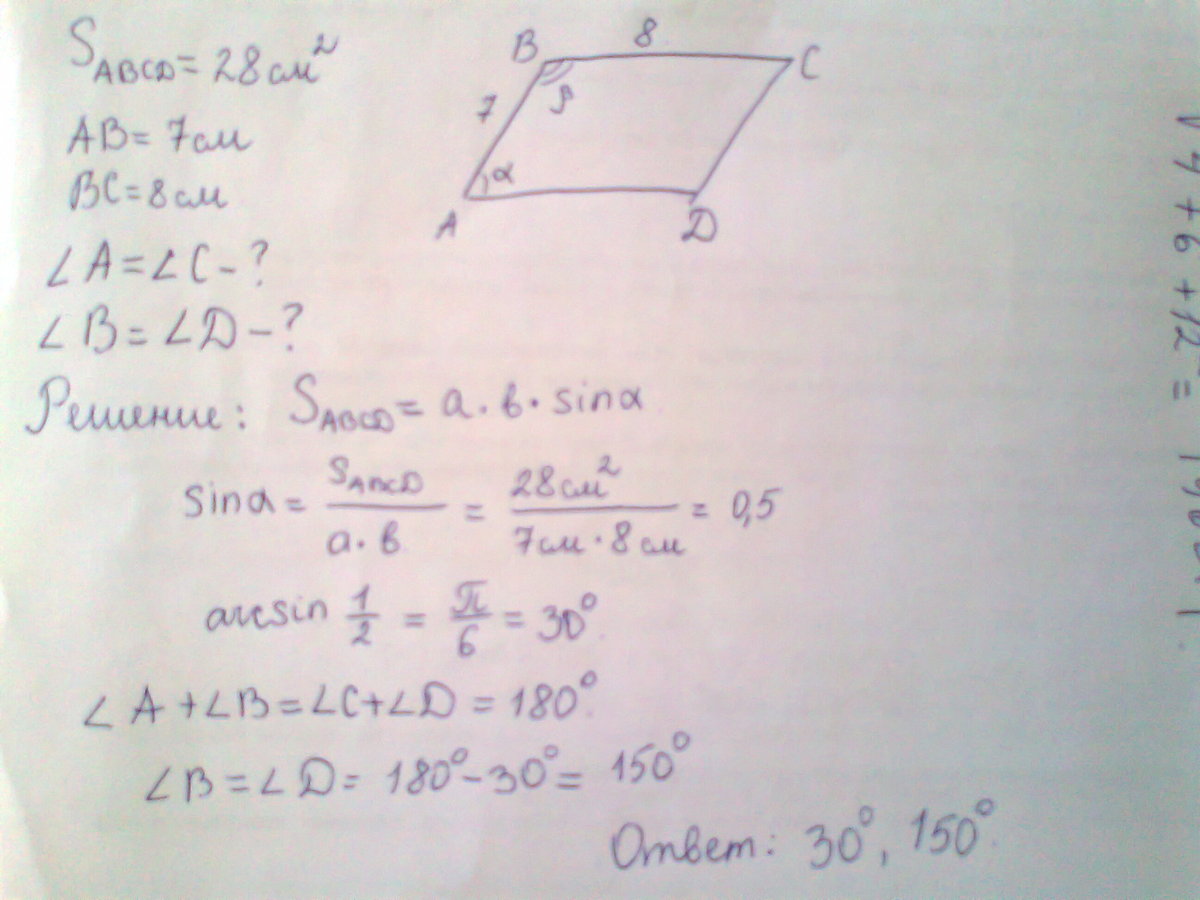 S_ABCD = 28 см²
AB = 7 см
BC = 8 см
∠A = ∠C - ?
∠B = ∠D - ?
B 8 C
7 β
α
A D
Решение: S_ABCD = a · в · sinα
sinα = S_ABCD / (a · в) = 28 см² / (7 см · 8 см) = 0,5
arcsin 1/2 = π/6 = 30°.
∠A + ∠B = ∠C + ∠D = 180°.
∠B = ∠D = 180° - 30° = 150°
Ответ: 30°, 150°.
+ 6 + 12 =